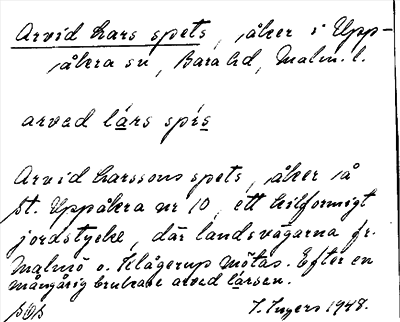 Arvid Lars spets, åker i Upp-
åkra sn, Bara hd, Malm. l.
arved lárs spés
Arvid Larssons spets, åker å
St. Uppåkra nr 10, ett kilformigt
jordstycke, där landsvägarna fr.
Malmö o. Klågerup mötas. Efter en
mångårig brukare arved lársen.
I. Ingers 1948.